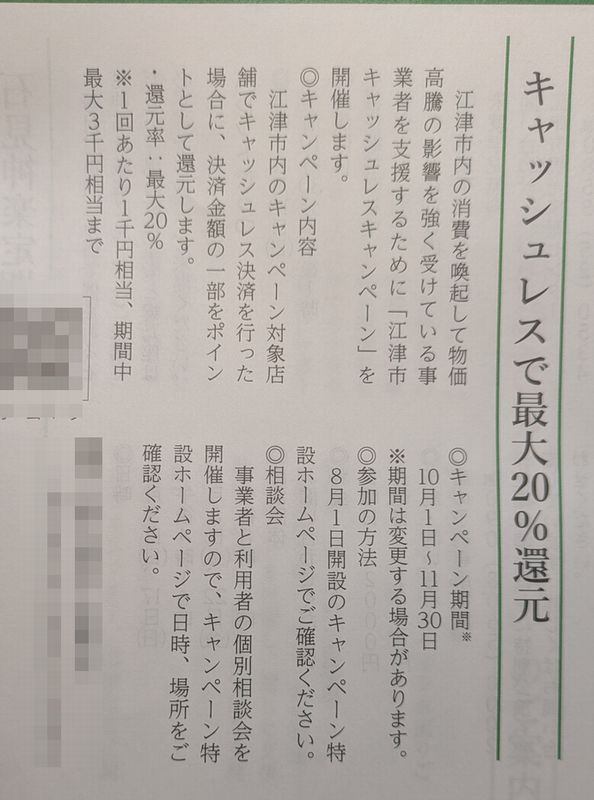 キャッシュレスで最大20%還元
江津市内の消費を喚起して物価
高騰の影響を強く受けている事
業者を支援するために「江津市
キャッシュレスキャンペーン」を
開催します。
◎キャンペーン内容
江津市内のキャンペーン対象店
舗でキャッシュレス決済を行った
場合に、決済金額の一部をポイン
トとして還元します。
・還元率:最大20%
※1回あたり1千円相当、期間中
最大3千円相当まで
◎キャンペーン期間※
10月1日~11月30日
※期間は変更する場合があります。
◎参加の方法
8月1日開設のキャンペーン特
設ホームページでご確認ください。
◎相談会
事業者と利用者の個別相談会を
開催しますので、キャンペーン特
設ホームページで日時、場所をご
確認ください。